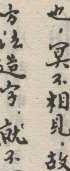 也冥不相見故
方法造字就不